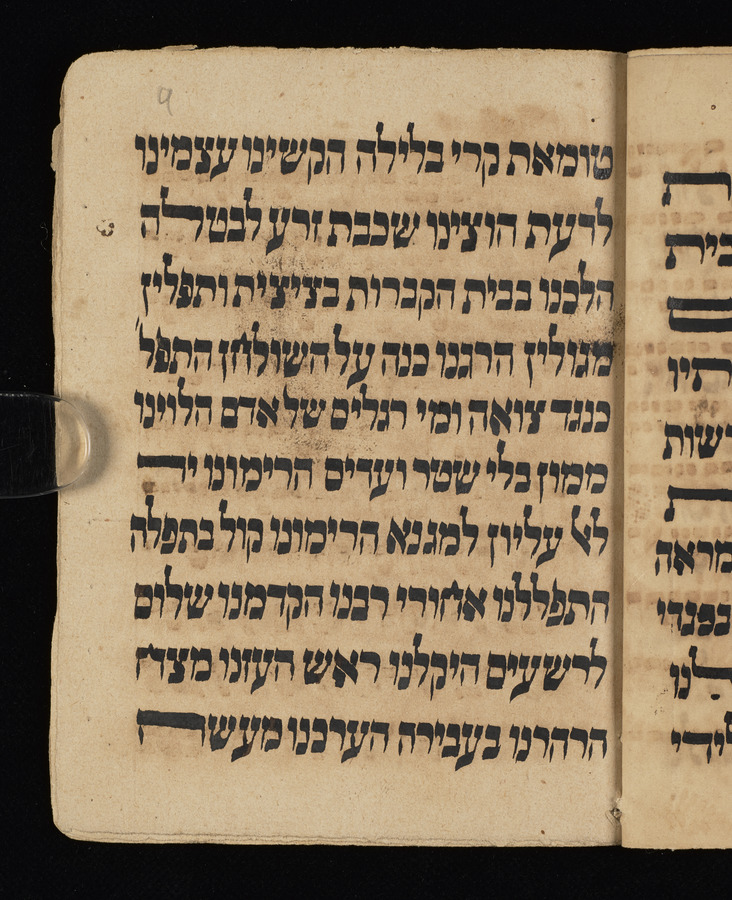 9
טומאת קרי בלילה הקשינו עצמינו
לדעת הוצינו שכבת זרע לבטלה
הלכנו בבית הקברות בציצית ותפלין
מגולין הרגנו כנה על השולחן התפל'
כנגד צואה ומי רגלים של אדם הלוינו
ממון בלי שטר ועדים הרימונו יד
לאל עליון למגנא הרימונו קול בתפלה
התפללנו אחורי רבנו הקדמנו שלום
לרשעים היקלנו ראש העזנו מצח
הרהרנו בעבירה הערכנו מעשה
ת
בית
תיו
רשות
ת
מראה
בפנדי
לנו